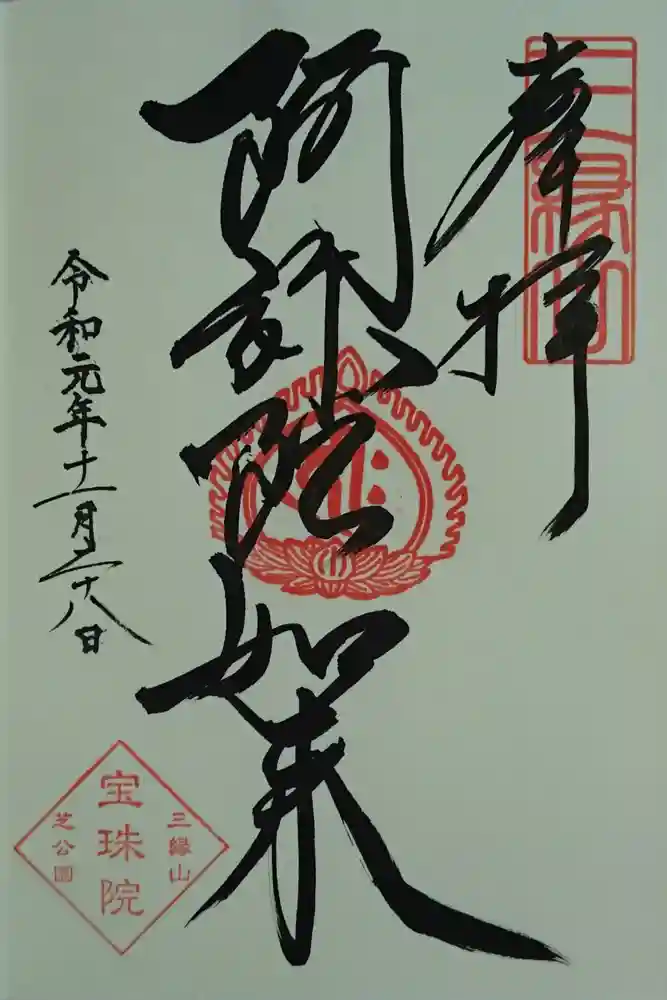 奉拝
三縁山
阿弥陀如来
令和元年十一月二十八日
三縁山
宝珠院
芝公園